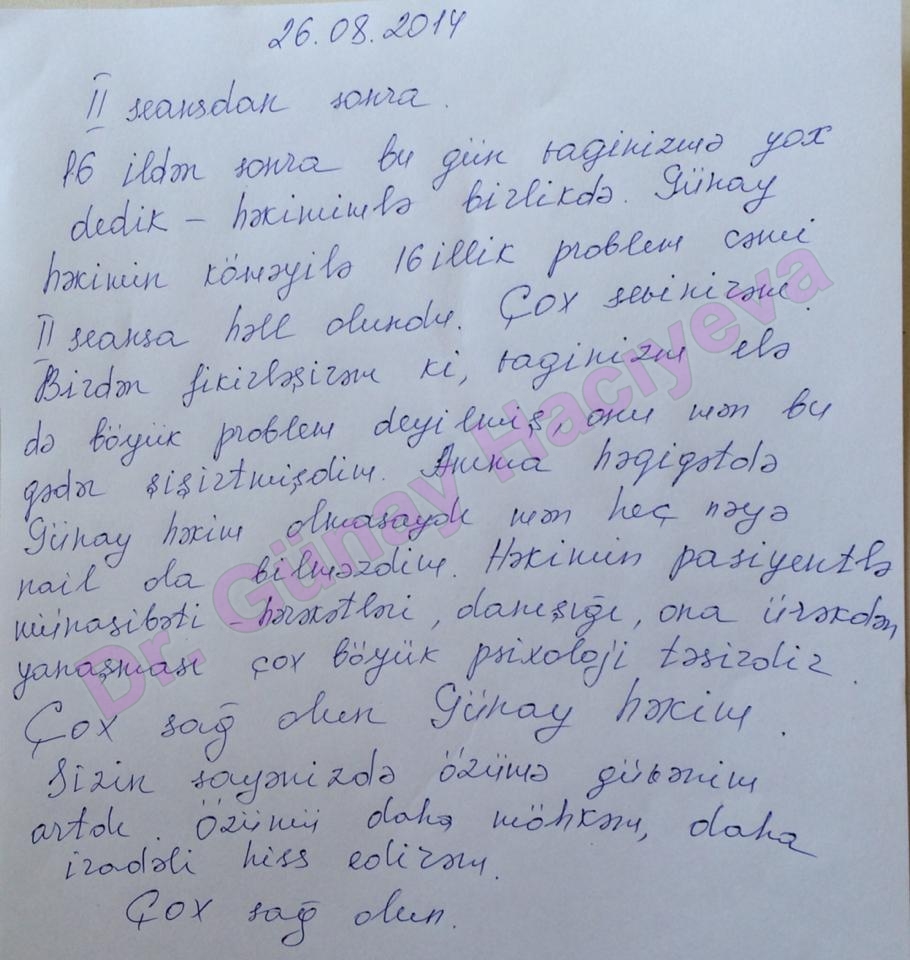 26.08.2014
II seansdan sonra.
16 ildən sonra bu gün vaginizmə yox
dedik – həkimimlə birlikdə. Günay
həkimin köməyilə 16 illik problem cəmi
II seansa həll olundu. Çox sevinirəm.
Birdən fikirləşirəm ki, vaginizm elə
də böyük problem deyilmiş, onu mən bu
qədər şişirtmişdim. Amma həqiqətdə
Günay həkim olmasaydı mən heç nəyə
nail ola bilməzdim. Həkimin pasiyentlə
münasibəti – hərəkətləri, danışığı, ona ürəkdən
yanaşması çox böyük psixoloji təsirdir.
Çox sağ olun Günay həkim.
Sizin sayənizdə özümə güvənim
artdı. Özümü daha möhkəm, daha
iradəli hiss edirəm.
Çox sağ olun.
Dr. Günay Hacıyeva